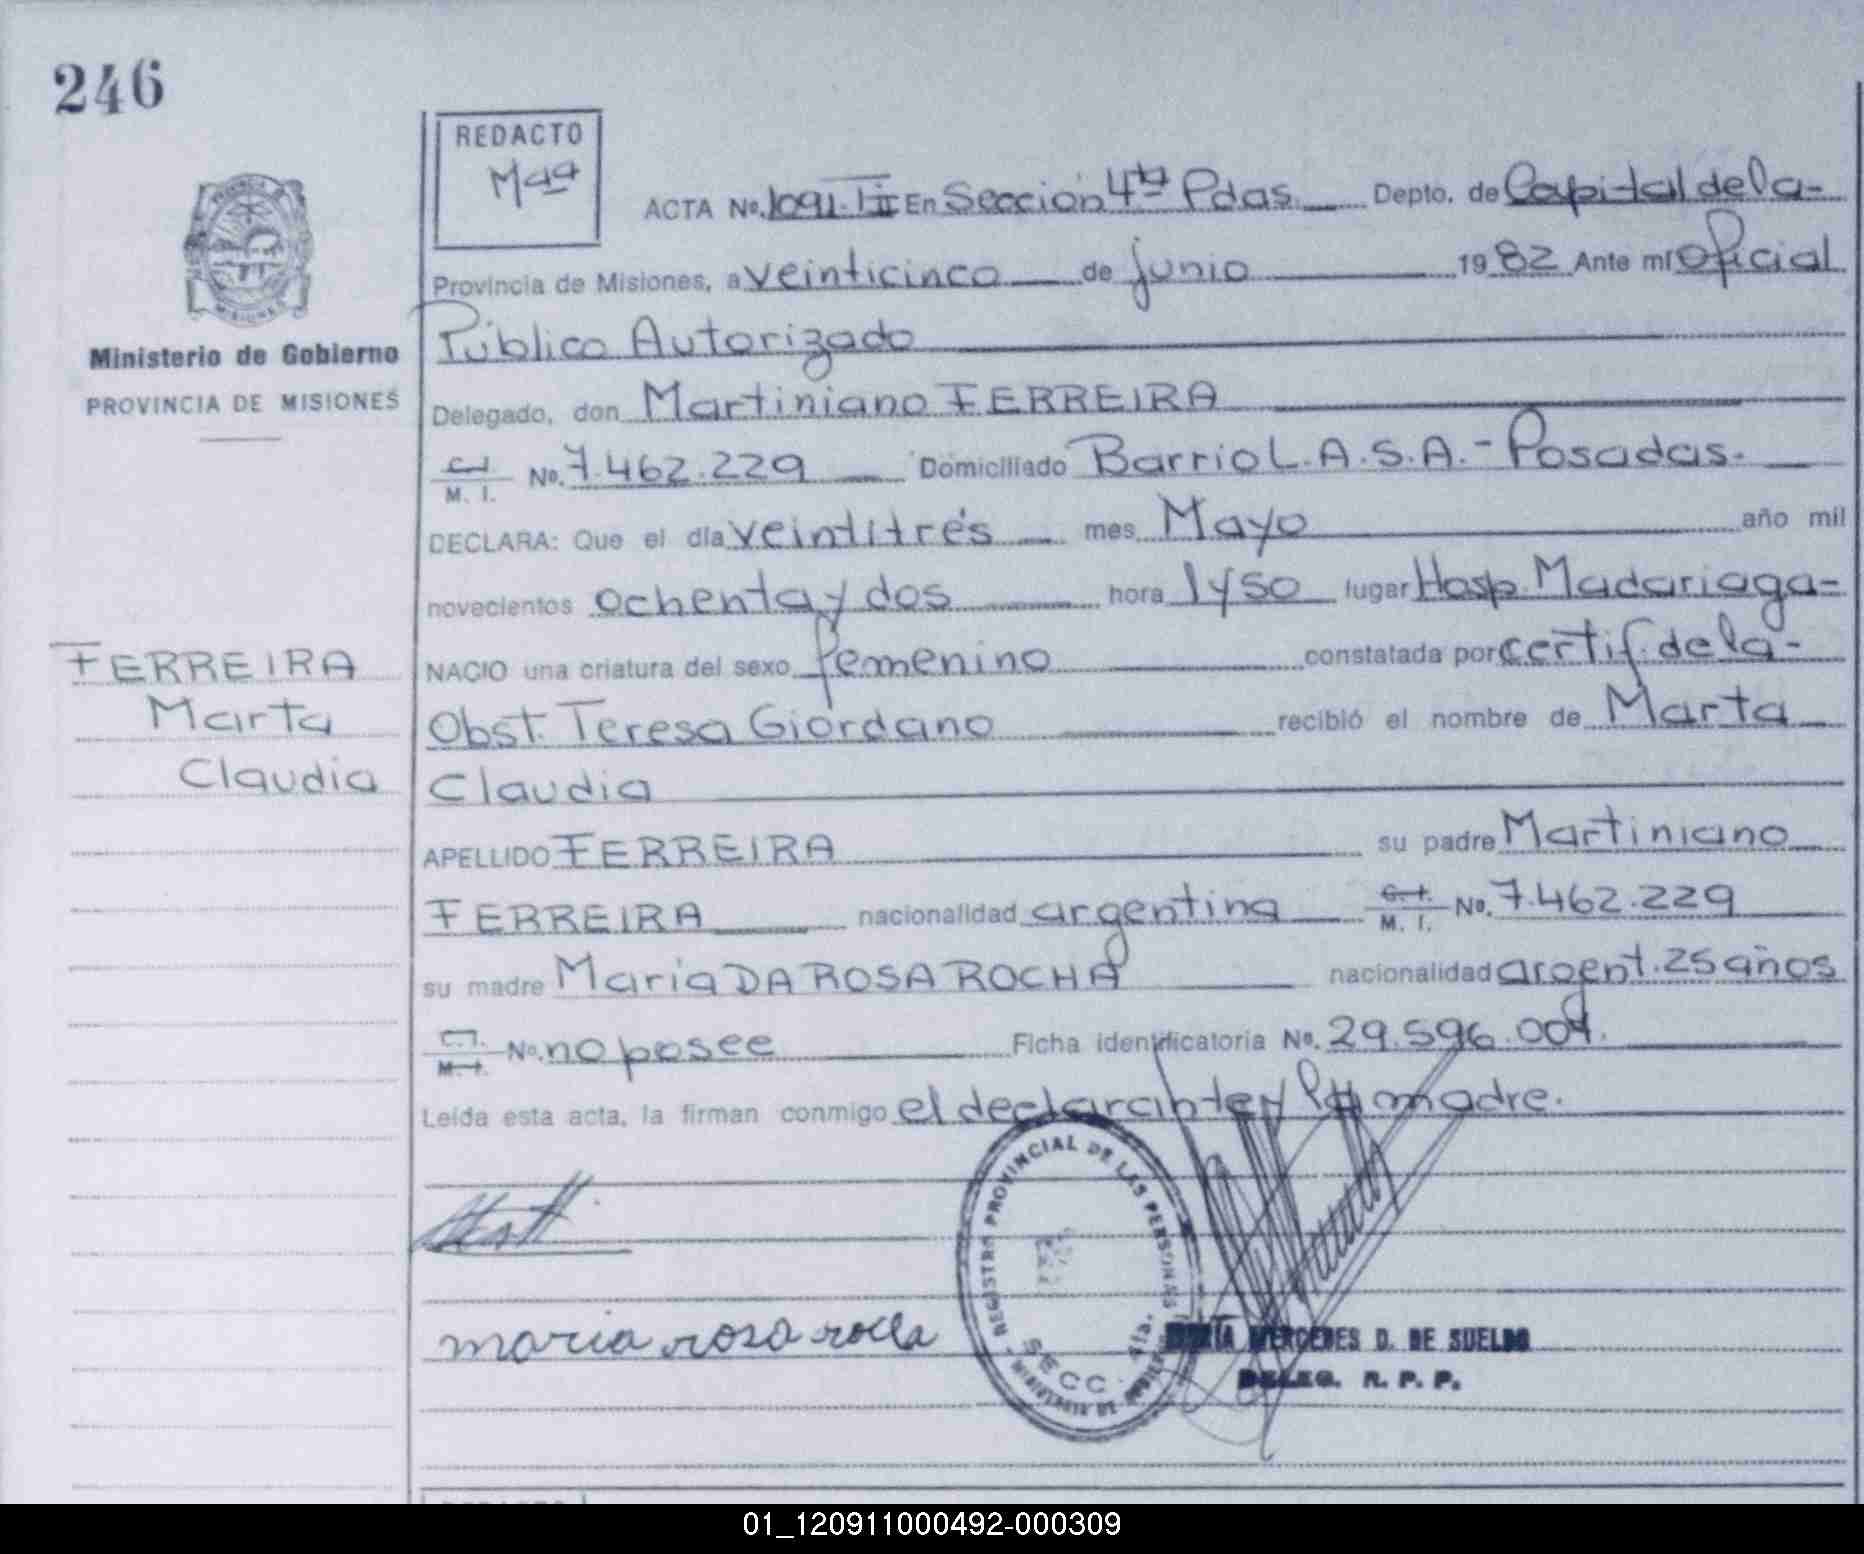 246
REDACTO
Maa
ACTA No. 1091-T II En Sección 4ta Pdas. Depto. de Capital de la-
Provincia de Misiones, a veinticinco de junio 1982 Ante mí Oficial
Público Autorizado
Ministerio de Gobierno
PROVINCIA DE MISIONES
Delegado, don Martiniano FERREIRA
C.I. M. I. No. 7.462.229 Domiciliado Barrio L.A.S.A.-Posadas.
DECLARA: Que el día veintitrés mes Mayo año mil
novecientos ochenta y dos hora 1y50 lugar Hosp. Madariaga-
FERREIRA
Marta
Claudia
NACIO una criatura del sexo femenino constatada por certif. de la-
Obst. Teresa Giordano recibió el nombre de Marta
Claudia
APELLIDO FERREIRA su padre Martiniano
FERREIRA nacionalidad argentina C.I. M. I. No. 7.462.229
su madre María DA ROSA ROCHA nacionalidad argent. 25 años
C.I. M.I. No. no posee Ficha identificatoria No. 29.596.009.
Leída esta acta, la firman conmigo el declarante y la madre.
REGISTRO PROVINCIAL DE LAS PERSONAS
SECC. 4ta.
MINISTERIO DE GOBIERNO
maria rosa rocha
MARTA MERCEDES D. DE SUELDO
DELEG. R. P. P.
01_120911000492-000309